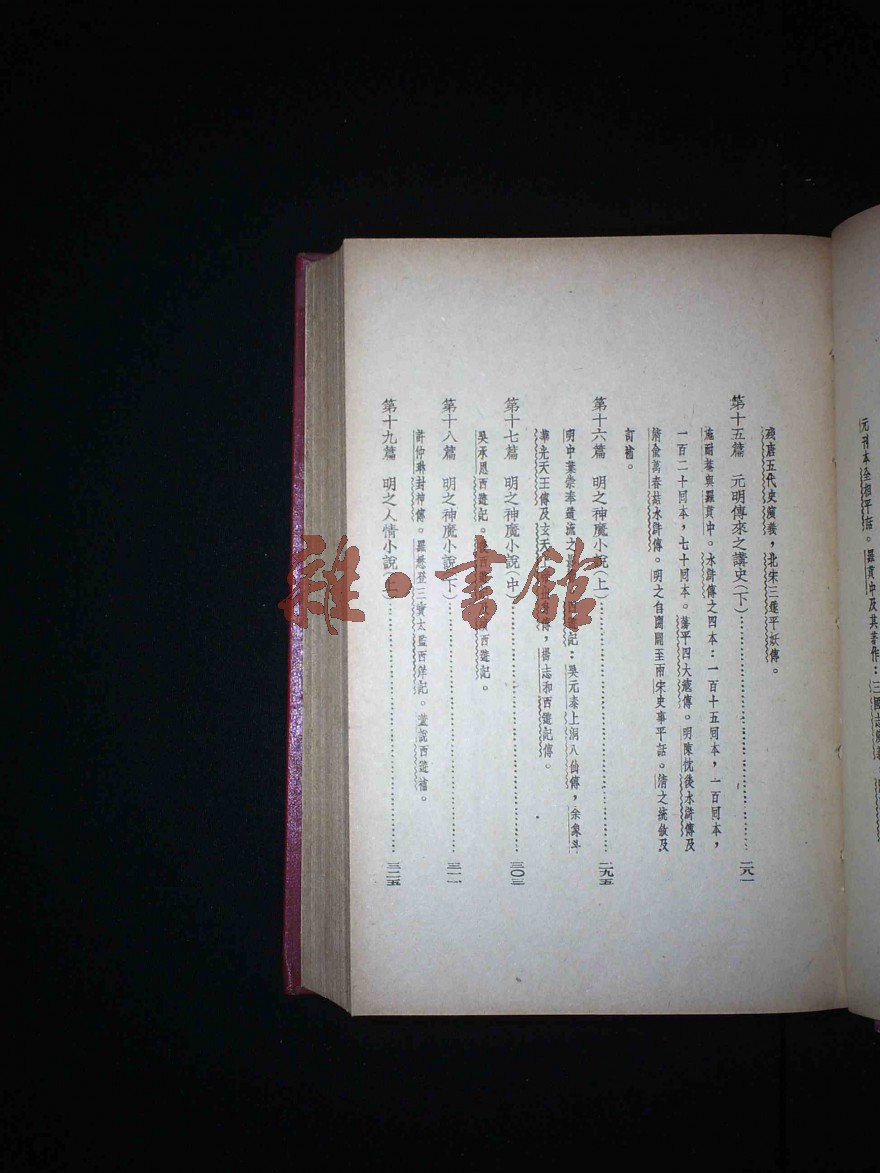 殘唐五代史演義，北宋三遂平妖傳。
第十五篇　元明傳來之講史（下）……二八一
施耐菴與羅貫中。水滸傳之四本：一百十五回本，一百回本，
一百二十回本，七十回本。蕩平四大寇傳。明陳忱後水滸傳及
清俞萬春結水滸傳。明之自開闢至兩宋史事平話。清之統敘及
訂補。
第十六篇　明之神魔小說（上）……二九五
明中葉崇奉道流之　　遊記：吳元泰上洞八仙傳，余象斗
華光天王傳及玄天　　傳，楊志和西遊記傳。
第十七篇　明之神魔小說（中）……三〇三
吳承恩西遊記。後西遊　續西遊記。
第十八篇　明之神魔小說（下）……三一一
許仲琳封神傳。羅懋登三寶太監西洋記。董說西遊補。
第十九篇　明之人情小說（上）……三二五
元刊本全相平話。羅貫中及其著作：三國志演義
雜·書館